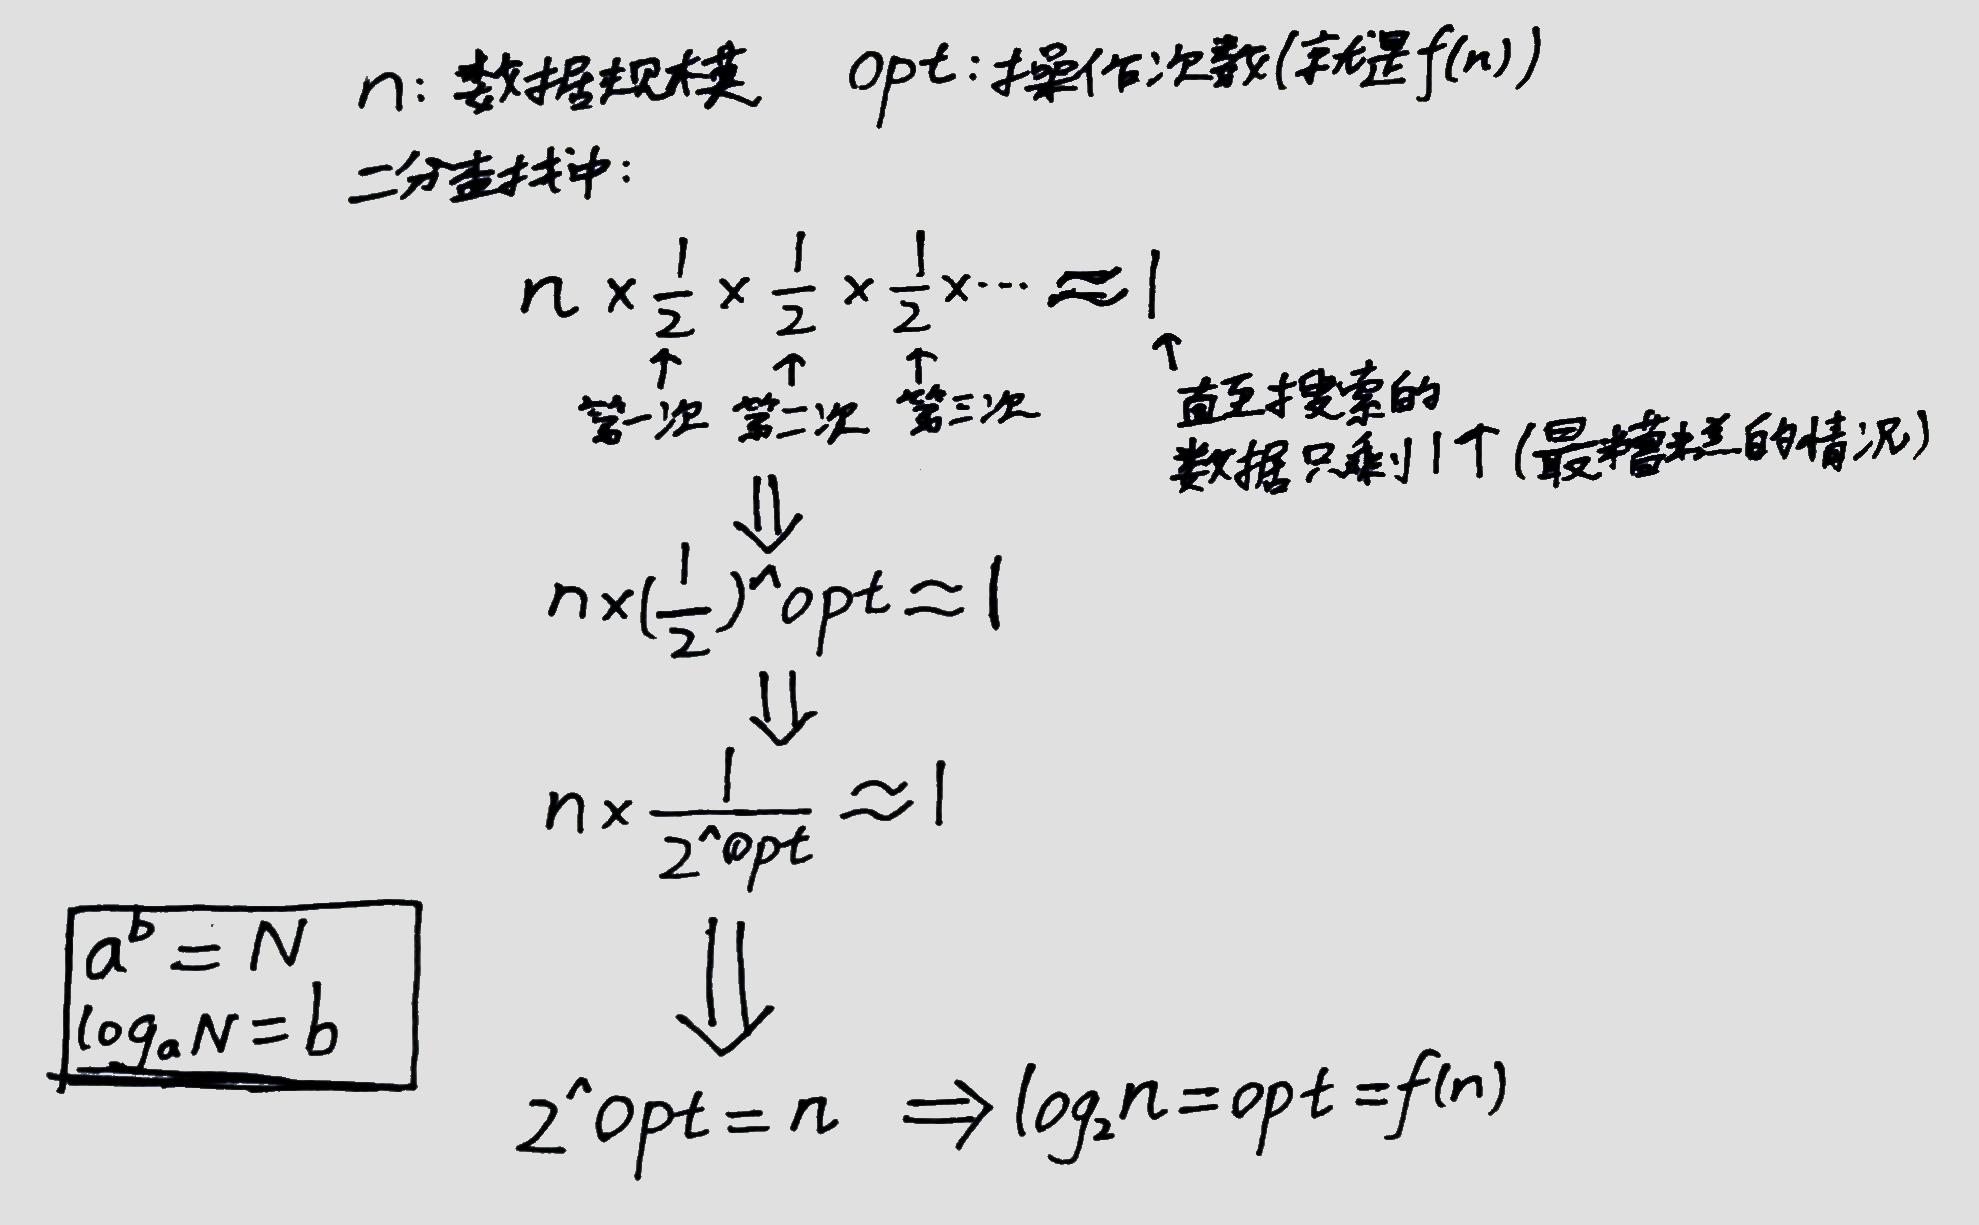 n: 数据规模 opt: 操作次数(就是f(n))
二分查找中:
n × 1/2 × 1/2 × 1/2 × ··· ≈ 1
↑ ↑ ↑ ↑
第一次 第二次 第三次
直至搜索的
数据只剩1个(最糟糕的情况)
⇓
n×(1/2)^opt ≈ 1
⇓
n × 1/2^opt ≈ 1
⇓
2^opt = n ⇒ log₂n = opt = f(n)
aᵇ = N
logₐN = b